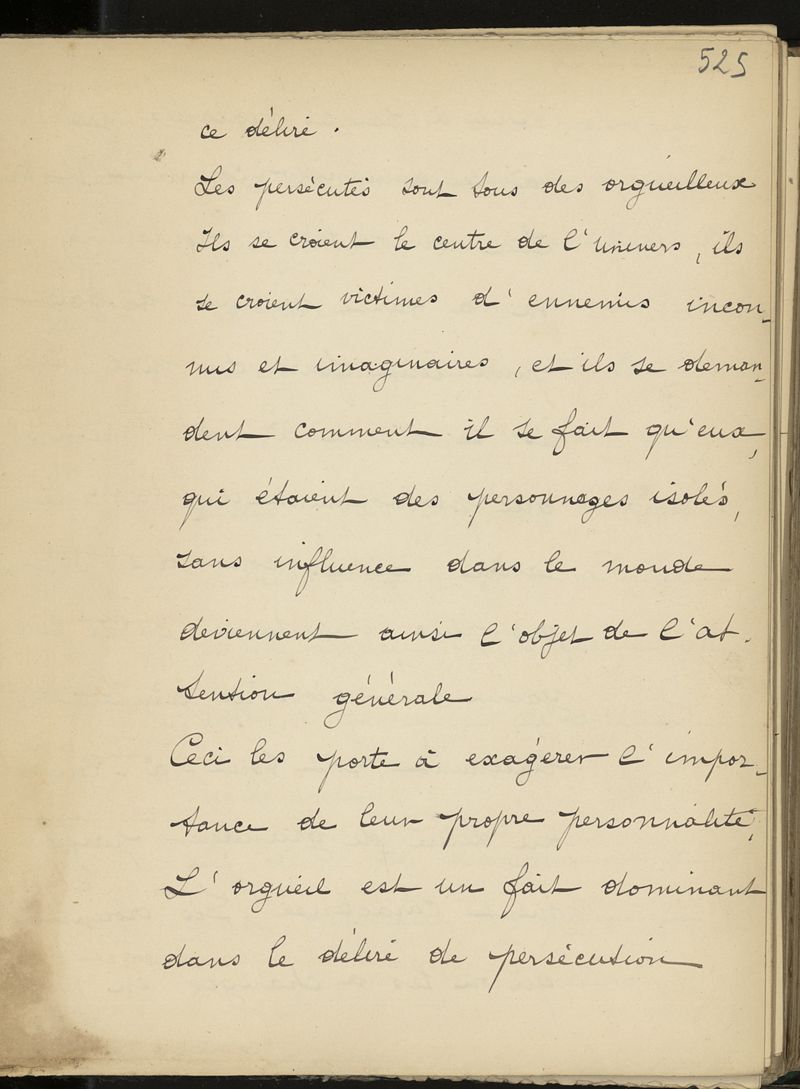 525
ce délire.
Les persécutés sont tous des orgueilleux
Ils se croient le centre de l'univers, ils
se croient victimes d'ennemis incon-
nus et imaginaires, et ils se deman-
dent comment il se fait qu'eux,
qui étaient des personnages isolés,
sans influence dans le monde
deviennent ainsi l'objet de l'at-
tention générale
Ceci les porte à exagérer l'impor-
tance de leur propre personnalité,
L'orgueil est un fait dominant
dans le délire de persécution